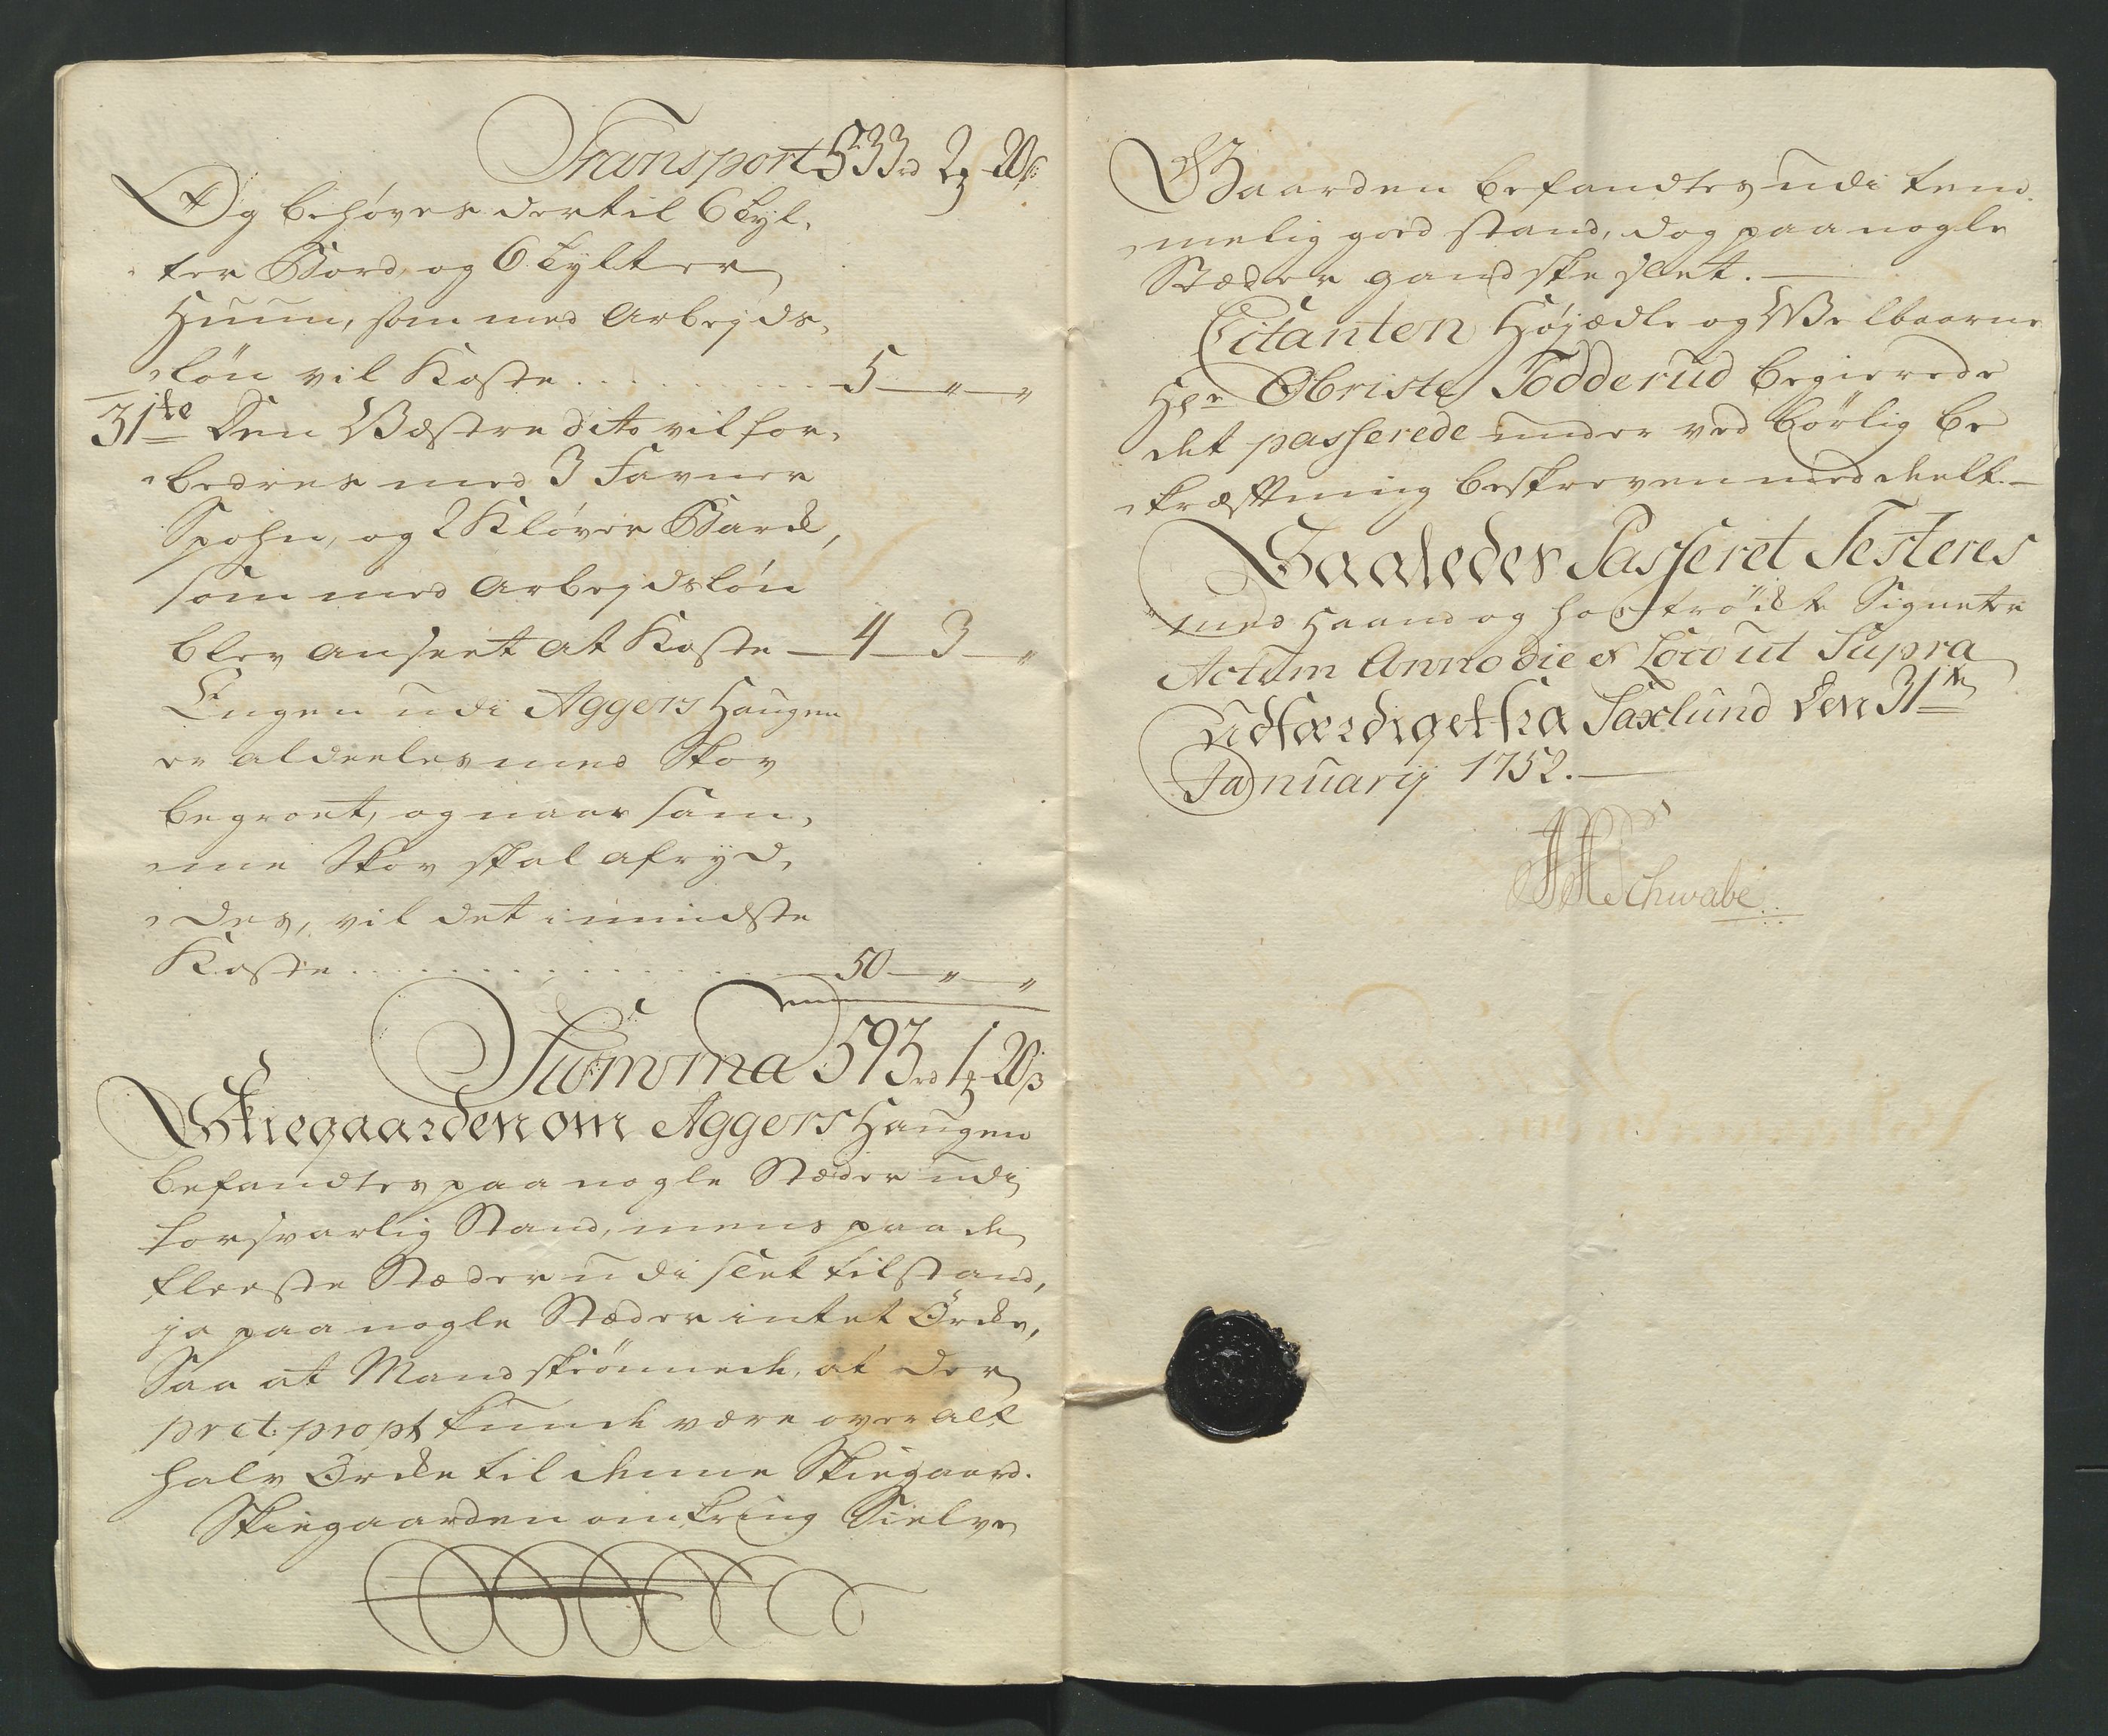 Transport 533 rd 2 ꝳ 20 ß
Og behøves dertil 6 Tyl,
ter Bord, og 6 Tylter
Huun, som med Arbejds,
løn vil Koste . . . . . . . . . . 5 — „ — „
31te Den Væstre dito vil for,
bedres med 3 Favner
Spohn, og 2 Kløver Bark,
som med Arbejdsløn
blev anseet at Koste — 4 — 3 — „
Engen udi Aggers Haugen
er aldeeles med Skov
begroet, og naar sam,
me Skov skal afryd,
des, vil det i mindste
Koste . . . . . . . . . . . . 50 — „ — „
Summa 593 rd 1 ꝳ 20 ß
Skiegaarden om Aggers Haugen
befandtes paa nogle Stæder udi
forsvarlig Stand, mens paa de
fleeste Stæder udi slet tilstand,
ja paa nogle Stæder intet Örke,
Saa at Mand skiönnede, at der
pret. propt. kunde være over alt
halv Örke til denne Skiegaard.
Skiegaarden omkring Sielve
Gaarden befandtes udi tem,
melig god stand, dog paa nogle
Stæder gandske slet. —
Citanten Højædle og Velbaarne
Hr Obriste Todderud begierede
det passerede under ved børlig be
kræftning beskreven meddeelt. —
Saaledes Passeret Testeres
med Haand og hoströkte Signete
Actum Anno die & Loco ut Supra
Udfærdiget fra Saxlund den 31te
Januarij 1752. —
Schwabe